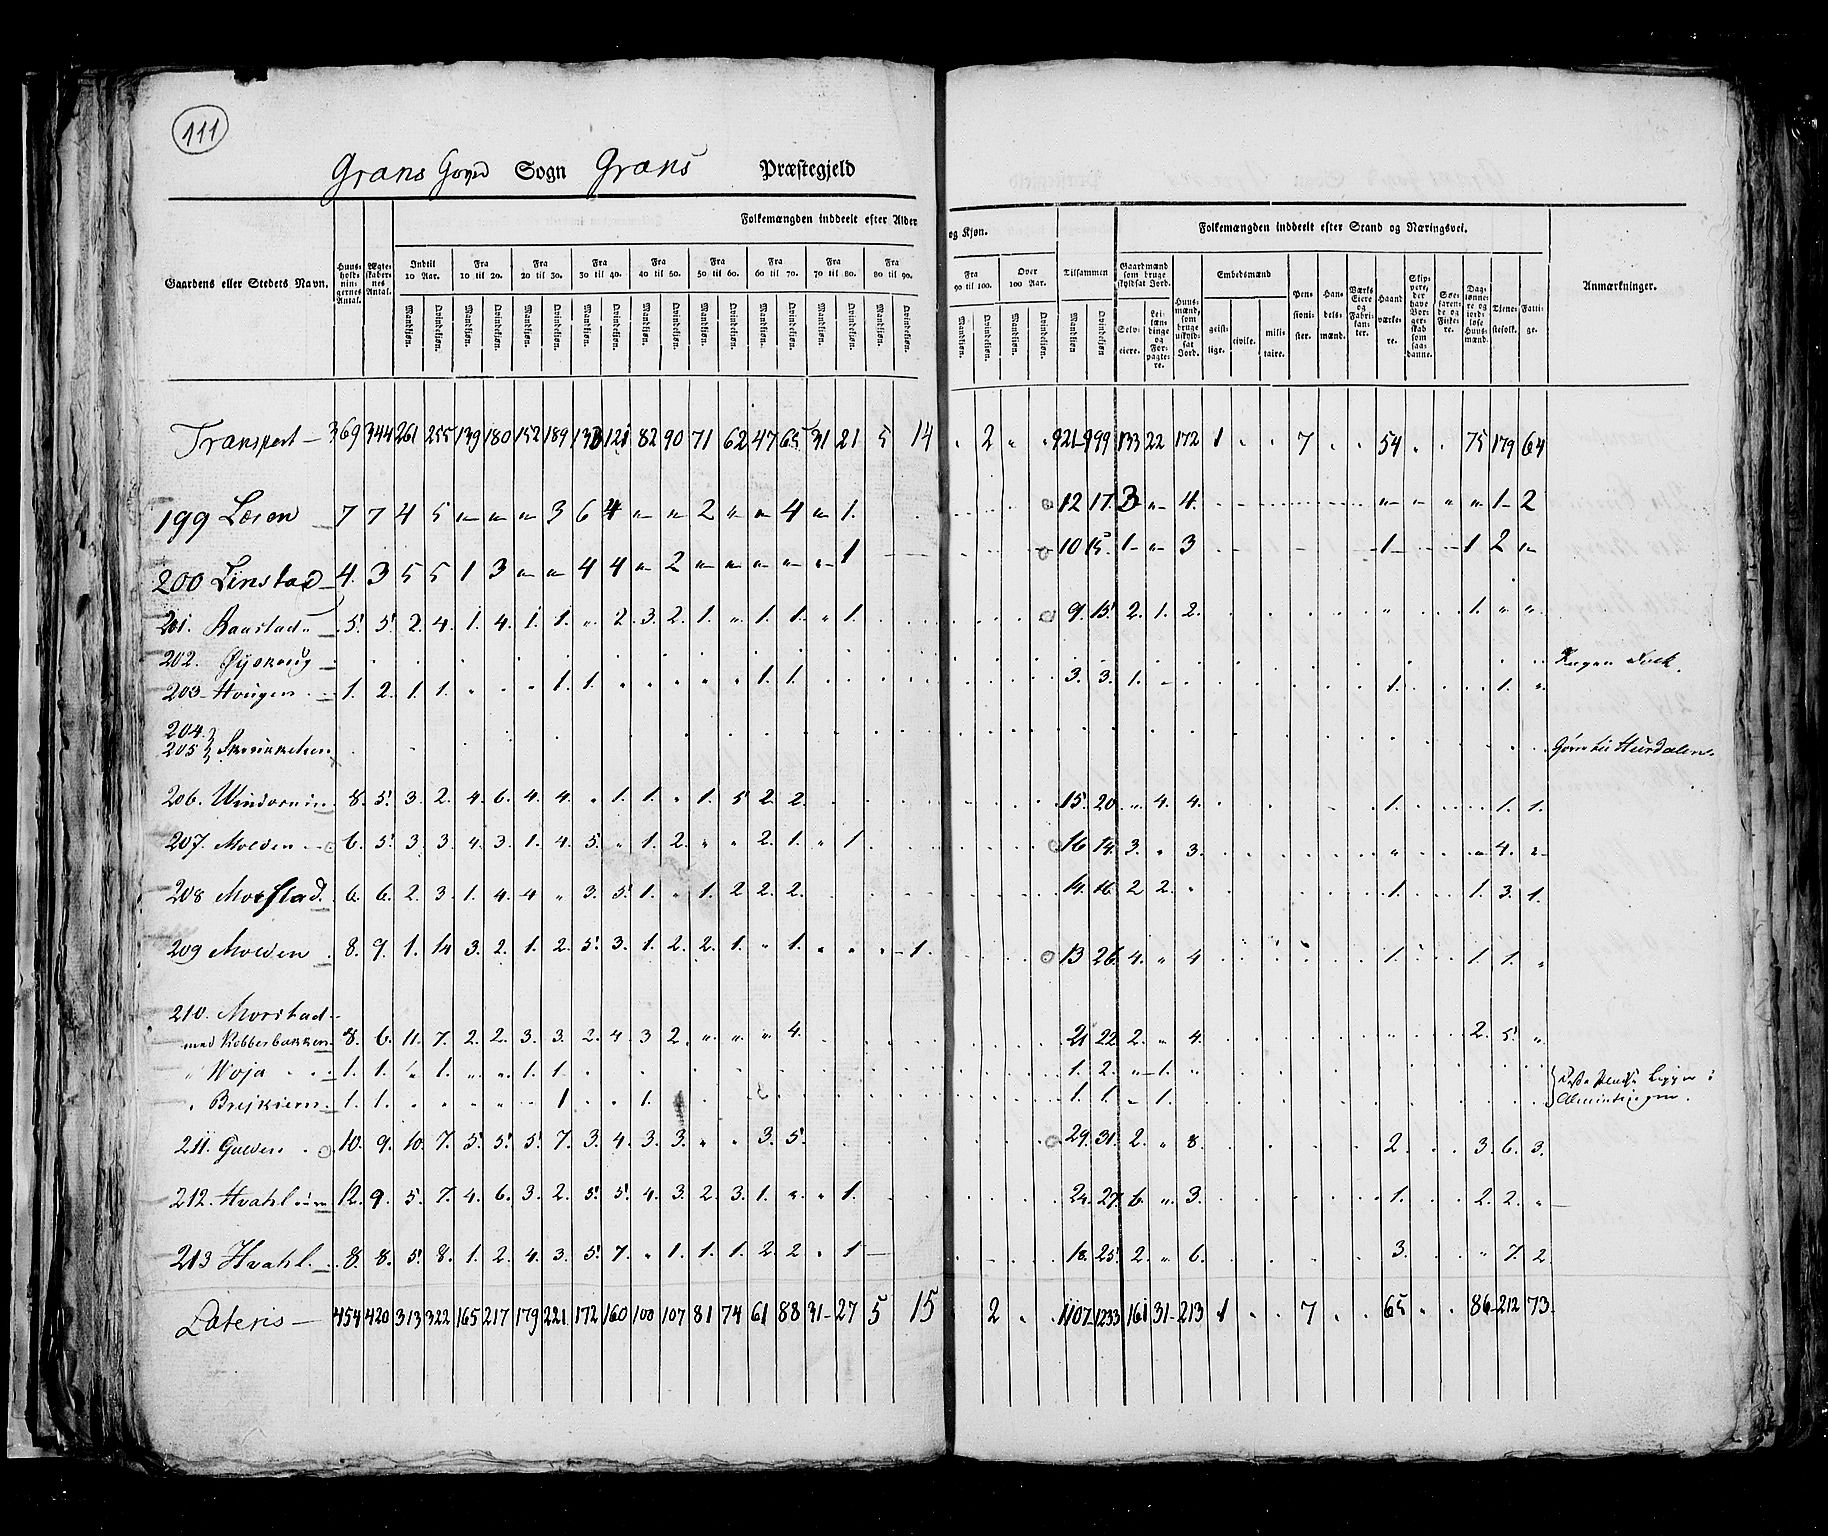 111
Grans Hoved Sogn Grans Præstegjeld
Folkemængden inddeelt efter Alder og Kjøn.
Folkemængden inddeelt efter Stand og Næringsvei.
Gaardens eller Stedets Navn.
Huusholdningernes Antal.
Ægteskabernes Antal.
Indtil 10 Aar. Fra 10 til 20. Fra 20 til 30. Fra 30 til 40. Fra 40 til 50. Fra 50 til 60. Fra 60 til 70. Fra 70 til 80. Fra 80 til 90. Fra 90 til 100. Over 100 Aar. Tilsammen
Mandkjøn. Qvindekjøn.
Gaardmænd som bruge skyldsat Jord. Selveiere. Leilændinge og Forpagtere. Huusmænd, som bruge uskyldsat Jord. Embedsmænd geistlige. civile. militaire. Pensionister. Handelsmænd. Værks Eiere og Fabrikanter. Haandværkere. Skippere, der have Borgerskab som saadanne. Søefarende og Fiskere. Daglønnere og jordløse Huusmænd. Tjenestefolk. Fattige.
Anmærkninger.
Transport 369 344 261 255 139 180 152 189 133 121 82 90 71 62 47 65 31 21 5 14 2 921 999 133 22 172 1 7 54 75 179 64
199 Læren 7 7 4 5 3 6 4 2 4 1. 12 17. 3 4. 1 2
200 Linstad 4. 3 5 5 1 3 4 4 2 1 10 15. 1 3 1 1 2
201. Raastad 5. 5. 2. 4. 1. 4. 1. 1. 2. 3. 2. 1. 1. 1. 1. 9. 15. 2. 1. 2. 1.
202. Øyskoug Ingen Folk.
203 Hougen 1. 2. 1. 1. 1. 1. 1. 1. 3. 3. 1. 1. 1.
204.
205 Hurdalen.
206. 8. 5. 3. 2. 4. 6. 4. 4. 1. 1. 1. 5 2. 2. 15. 20. 4. 4. 1. 1. 1.
207. Molden 6. 5. 3. 3. 4. 3. 1. 4. 5. 1. 2. 2. 1. 1. 16 14. 3. 3. 4.
208 Morstad. 6. 6. 2. 3. 1. 4. 4 3. 5. 1. 1. 2 2. 2. 14. 16. 2 2. 1. 1. 3. 1.
209 Molden 8. 9. 1. 14 3. 2. 1. 2. 5. 3. 1. 2. 2. 1. 1. 1. 13 26. 4. 4 1. 1. 1.
210. Morstad
med Robbesbakken 8. 6. 11. 7. 2. 2. 3. 3. 2. 4. 3 2. 4. 21 22 2. 4. 2. 5.
" Woja 1. 1. 1. 1. 1. 1. 2. 1.
" 1. 1. 1 1. 1. 1. 1.
211. Gulden 10. 9. 10. 7. 5. 5. 5. 7. 3. 4. 3. 3. 3. 5. 29. 31. 2. 8. 2. 3. 6. 3.
212. 12. 9. 5. 7. 4. 6. 3. 2. 5. 5. 4. 3. 2. 3. 1. 1. 24. 27. 6. 3. 1. 2. 2.
213 Hvahl 8. 8. 5. 8. 1. 2. 4. 3. 5. 7. 1. 1. 1. 2. 2. 1 18. 25. 2. 6. 3. 7. 2
Lateris 454 420 313 322 165 217 179 221 172 160 100 107 81 74 61 88 31 27 5 15 2 1107 1233 161 31 213 1 7 65 86 212 73